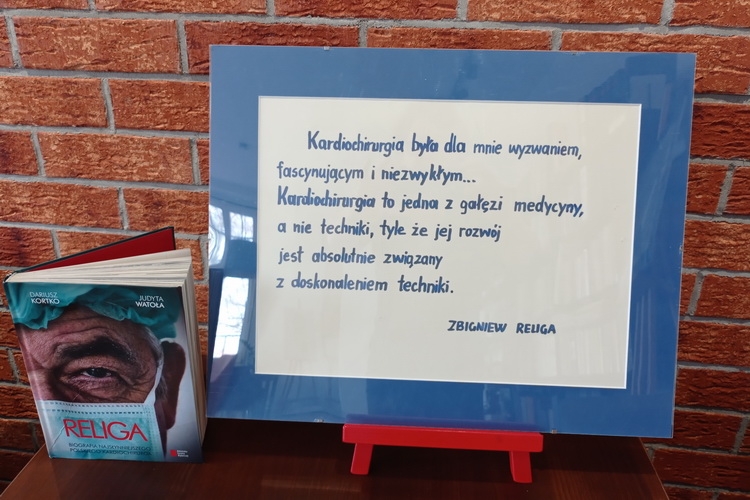 Kardiochirurgia była dla mnie wyzwaniem,
fascynującym i niezwykłym...
Kardiochirurgia to jedna z gałęzi medycyny,
a nie techniki, tyle że jej rozwój
jest absolutnie związany
z doskonaleniem techniki.
ZBIGNIEW RELIGA
DARIUSZ
KORTKO
JUDYTA
WATOŁA
RELIGA
BIOGRAFIA NAJSŁYNNIEJSZEGO
POLSKIEGO KARDIOCHIRURGA